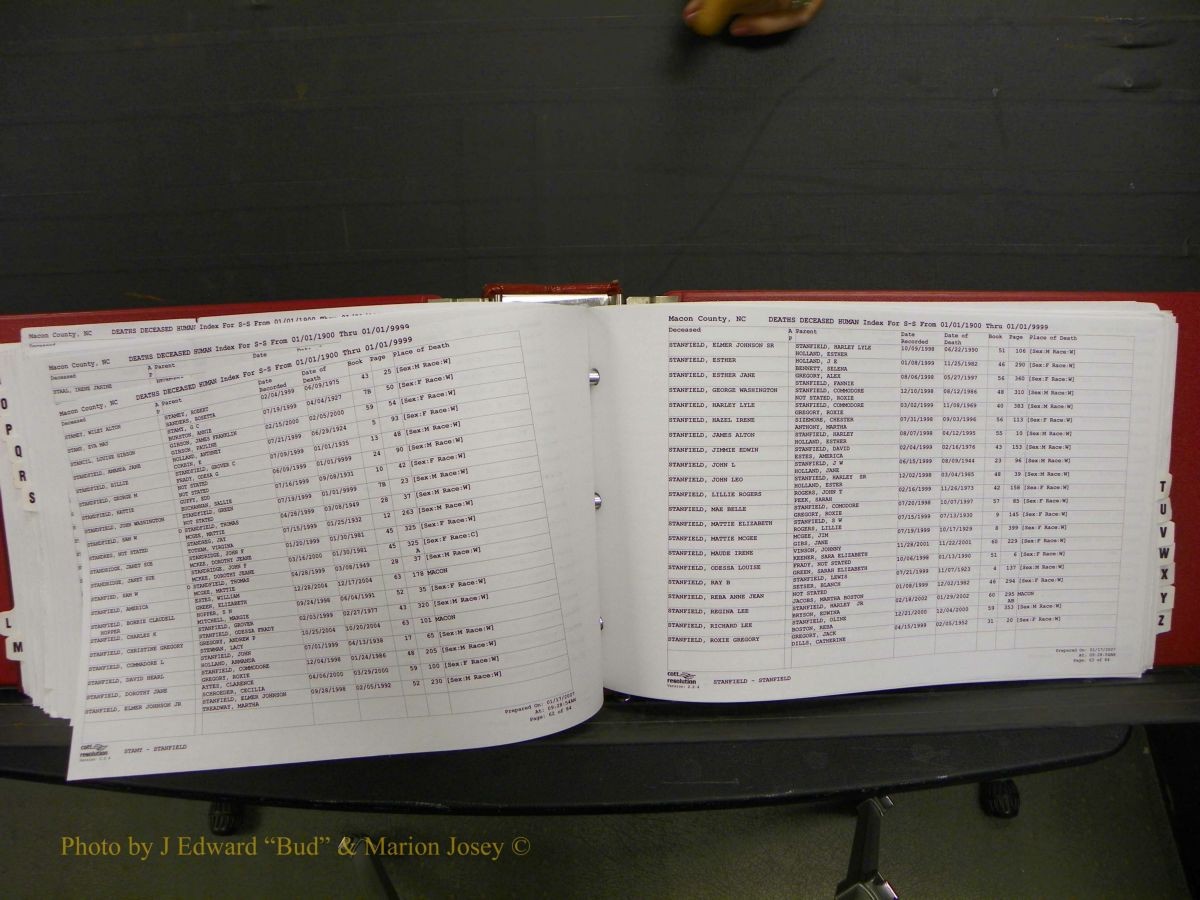 O
P
Q
R
S
L
M
Macon County, NC DEATHS DECEASED HUMAN Index For S-S From 01/01/1900 Thru 01/01/9999
Macon County, NC DEATHS DECEASED HUMAN Index For S-S From 01/01/1900 Thru 01/01/9999
Deceased A Parent Date
STAAL, IRENE JANINE P
Macon County, NC DEATHS DECEASED HUMAN Index For S-S From 01/01/1900 Thru 01/01/9999
Deceased A Parent Date Date of Book Page Place of Death
P Recorded Death
STAMEY, WILEY ALTON STAMEY, ROBERT 02/04/1999 06/09/1975 43 25 [Sex:M Race:W]
SANDERS, ROSETTA
STAMT, EVA MAY STAMT, G C 07/19/1999 04/04/1927 7B 50 [Sex:F Race:W]
BURSTON, ANNIE
STANCIL, LOUISE GIBSON GIBSON, JAMES FRANKLIN 02/15/2000 02/05/2000 59 54 [Sex:F Race:W]
GIBSON, PAULINE
STANDFIELD, AMANDA JANE
STANDFIELD, BILLIE STANDFIELD, GROVER C
STANDFIELD, GEORGE M NOT STATED
STANDFIELD, HATTIE
STANDFIELD, JOHN WASHINGTON STANDFIELD, GREEN
STANDFIELD, SAM W D STANDFIELD, THOMAS 04/28/1999 03/08/1949 28 37 [Sex:M Race:W]
MCGEE, MATTIE
STANDRES, NOT STATED STANDRES, JAY 07/15/1999 01/25/1932 12 263 [Sex:M Race:W]
TOTEHR, VIRGINA
STANDRIDGE, JANET SUE STANDRIDGE, JOHN F 01/20/1999 01/30/1981 45 325 [Sex:F Race:C]
MCKEE, DOROTHY JEANE
STANDRIDGE, JANET SUE STANDRIDGE, JOHN F 03/16/2000 01/30/1981 45 325
MCKEE, DOROTHY JEANE A
STANFIED, SAM W D STANFIELD, THOMAS 04/28/1999 03/08/1949 28 37 [Sex:M Race:W]
MCGEE, MATTIE
STANFIELD, AMERICA ESTES, WILLIAM
GREEN, ELIZABETH
STANFIELD, BONNIE CLAUDELL HOPPER HOPPER, E H 12/28/2004 12/17/2004 63 178 MACON
MITCHELL, MARGIE
STANFIELD, CHARLES K STANFIELD, GROVER 09/24/1998 06/04/1991 52 35 [Sex:M Race:W]
STANFIELD, ODESSA FRADY
STANFIELD, CHRISTINE GREGORY GREGORY, ANDREW P 02/03/1999 02/27/1977 43 320 [Sex:F Race:W]
STEWMAN, LACY
STANFIELD, COMMADORE L STANFIELD, JOHN
HOLLAND, AMMANDA
STANFIELD, DAVID HEARL STANFIELD, COMMODORE
GREGORY, ROXIE
STANFIELD, DOROTHY JANE AYTES, CLARENCE 04/06/2000 03/29/2000 59 100 [Sex:F Race:W]
SCHROEDER, CECILIA
STANFIELD, ELMER JOHNSON JR STANFIELD, ELMER JOHNSON 09/28/1998 02/05/1992 52 230 [Sex:M Race:W]
TREADWAY, MARTHA
cott resolution
STAMT - STANFIELD
Prepared On: 01/17/2007
At: 09:28:54AM
Page: 62 of 84
Macon County, NC DEATHS DECEASED HUMAN Index For S-S From 01/01/1900 Thru 01/01/9999
Deceased A Parent Date Date of Book Page Place of Death
P Recorded Death
STANFIELD, ELMER JOHNSON SR STANFIELD, HARLEY LYLE 10/09/1998 06/22/1990 51 106 [Sex:M Race:W]
HOLLAND, ESTHER
STANFIELD, ESTHER HOLLAND, J E 01/08/1999 11/25/1982 46 290 [Sex:F Race:W]
BENNETT, SELENA
STANFIELD, ESTHER JANE GREGORY, ALEX 08/06/1998 05/27/1997 56 360 [Sex:F Race:W]
STANFIELD, FANNIE
STANFIELD, GEORGE WASHINGTON STANFIELD, COMMODORE 12/10/1998 08/12/1986 48 310 [Sex:M Race:W]
NOT STATED, ROXIE
STANFIELD, HARLEY LYLE STANFIELD, COMMODORE 03/02/1999 11/08/1969 40 383 [Sex:M Race:W]
GREGORY, ROXIE
STANFIELD, HAZEL IRENE SIZEMORE, CHESTER 07/31/1998 09/03/1996 56 113 [Sex:F Race:W]
ANTHONY, MARTHA
STANFIELD, JAMES ALTON STANFIELD, HARLEY 08/07/1998 04/12/1995 55 10 [Sex:M Race:W]
HOLLAND, ESTHER
STANFIELD, JIMMIE EDWIN STANFIELD, DAVID 02/04/1999 02/16/1976 43 153 [Sex:M Race:W]
ESTES, AMERICA
STANFIELD, JOHN L STANFIELD, J W 06/15/1999 08/09/1944 23 96 [Sex:M Race:W]
HOLLAND, JANE
STANFIELD, JOHN LEO STANFIELD, HARLEY SR 12/02/1998 03/04/1985 48 39 [Sex:M Race:W]
HOLLAND, ESTER
STANFIELD, LILLIE ROGERS ROGERS, JOHN T 02/16/1999 11/26/1973 42 158 [Sex:F Race:W]
PEEK, SARAH
STANFIELD, MAE BELLE STANFIELD, COMODORE 07/20/1998 10/07/1997 57 85 [Sex:F Race:W]
GREGORY, ROXIE
STANFIELD, MATTIE ELIZABETH STANFIELD, S W 07/15/1999 07/13/1930 9 145 [Sex:F Race:W]
ROGERS, LILLIE
STANFIELD, MATTIE MCGEE MCGEE, JIM 07/19/1999 10/17/1929 8 399 [Sex:F Race:W]
GIBS, JANE
STANFIELD, MAUDE IRENE VINSON, JOHNNY 11/28/2001 11/22/2001 60 229 [Sex:F Race:W]
KEENER, SARA ELIZABETH
STANFIELD, ODESSA LOUISE FRADY, NOT STATED 10/06/1998 01/13/1990 51 6 [Sex:F Race:W]
GREEN, SARAH ELIZABETH
STANFIELD, RAY B STANFIELD, LEWIS 07/21/1999 11/07/1923 4 137 [Sex:M Race:W]
NOT STATED
STANFIELD, REBA ANNE JEAN SETSER, BLANCH 01/08/1999 12/02/1982 46 294 [Sex:F Race:W]
JACOBS, MARTHA BOSTON
STANFIELD, REGINA LEE STANFIELD, HARLEY JR 02/18/2002 01/29/2002 60 295 MACON
BRISON, EDWINA AM
STANFIELD, RICHARD LEE STANFIELD, OLINE 12/21/2000 12/04/2000 59 353 [Sex:M Race:W]
BOSTON, REBA
STANFIELD, ROXIE GREGORY GREGORY, JACK 04/15/1999 02/05/1952 31 20 [Sex:F Race:W]
DILLS, CATHERINE
cott resolution
Version: 2.2.4
STANFIELD - STANFIELD
Prepared On: 01/17/2007
At: 09:28:54AM
Page: 63 of 84
T
U
V
W
X
Y
Z
Photo by J Edward “Bud” & Marion Josey ©